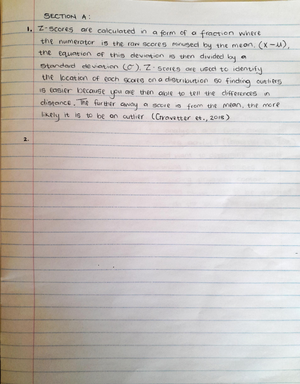 SECTION A:
1. Z-scores are calculated in a form of a fraction where
the numerator is the raw scores minused by the mean, (X-μ),
the equation of this deviation is then divided by a
standard deviation (σ). Z-scores are used to identify
the location of each scores on a distribution so finding outliers
is easier because you are then able to tell the differences in
distance. The further away a score is from the mean, the more
likely it is to be an outlier (Gravetter et., 2018)
2.